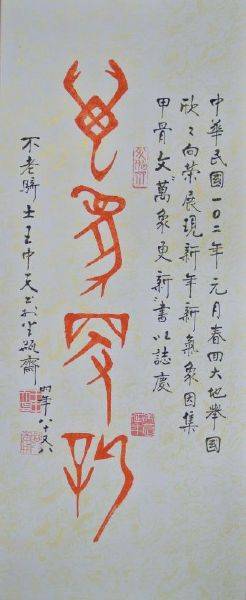 中華民國一〇二年元月春四大地舉國
欣欣向榮展現新年新氣象因集
甲骨文萬象更新書以誌慶
萬象更新
不老騎士王中天書於堂廬齋
時年八十又八